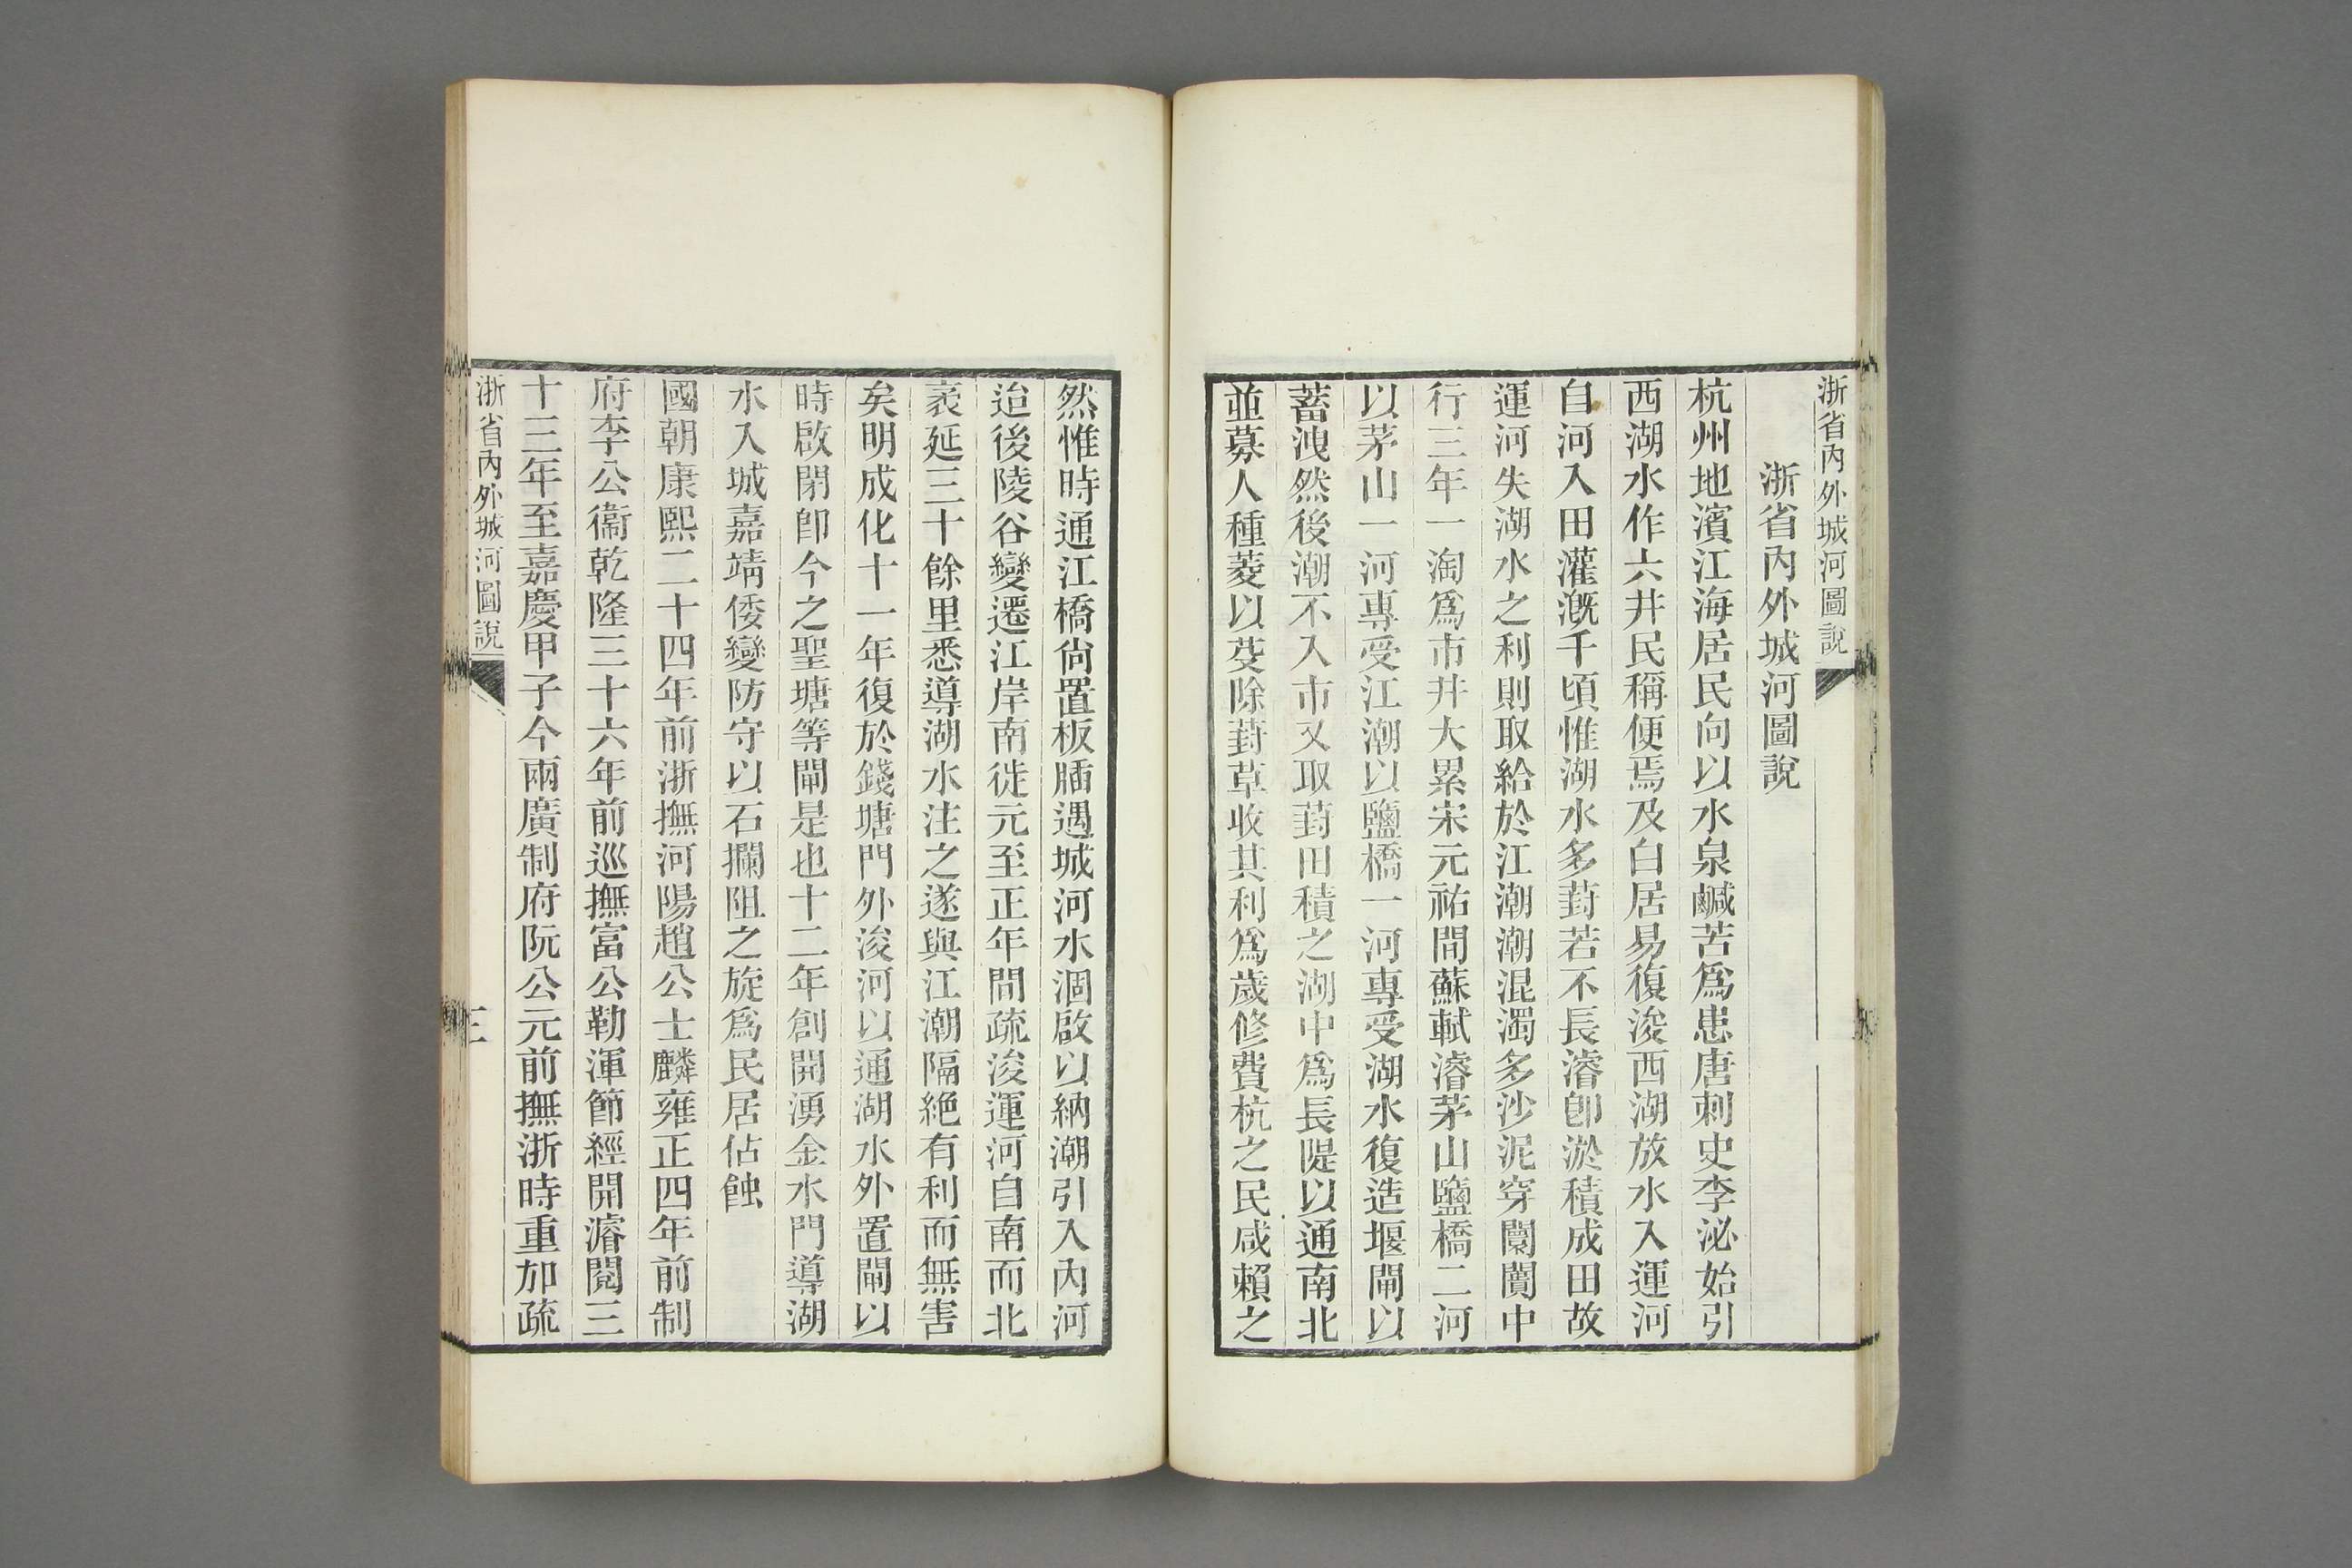 浙省內外城河圖說
浙省內外城河圖說
杭州地濱江海居民向以水泉鹹苦爲患唐刺史李泌始引
西湖水作六井民稱便焉及白居易復浚西湖放水入運河
自河入田灌溉千頃惟湖水多葑若不長濬卽淤積成田故
運河失湖水之利則取給於江潮潮混濁多沙泥穿闤闠中
行三年一淘爲市井大累宋元祐間蘇軾濬茅山鹽橋二河
以茅山一河專受江潮以鹽橋一河專受湖水復造堰閘以
蓄洩然後潮不入市又取葑田積之湖中爲長隄以通南北
並募人種菱以芟除葑草收其利爲歲修費杭之民咸賴之
然惟時通江橋尙置板牐遇城河水涸啟以納潮引入內河
迨後陵谷變遷江岸南徙元至正年間疏浚運河自南而北
袤延三十餘里悉導湖水注之遂與江潮隔絕有利而無害
矣明成化十一年復於錢塘門外浚河以通湖水外置閘以
時啟閉卽今之聖塘等閘是也十二年創開湧金水門導湖
水入城嘉靖倭變防守以石攔阻之旋爲民居佔蝕
國朝康熙二十四年前浙撫河陽趙公士麟雍正四年前制
府李公衞乾隆三十六年前巡撫富公勒渾節經開濬閱三
十三年至嘉慶甲子今兩廣制府阮公元前撫浙時重加疏
浙省內外城河圖說
三